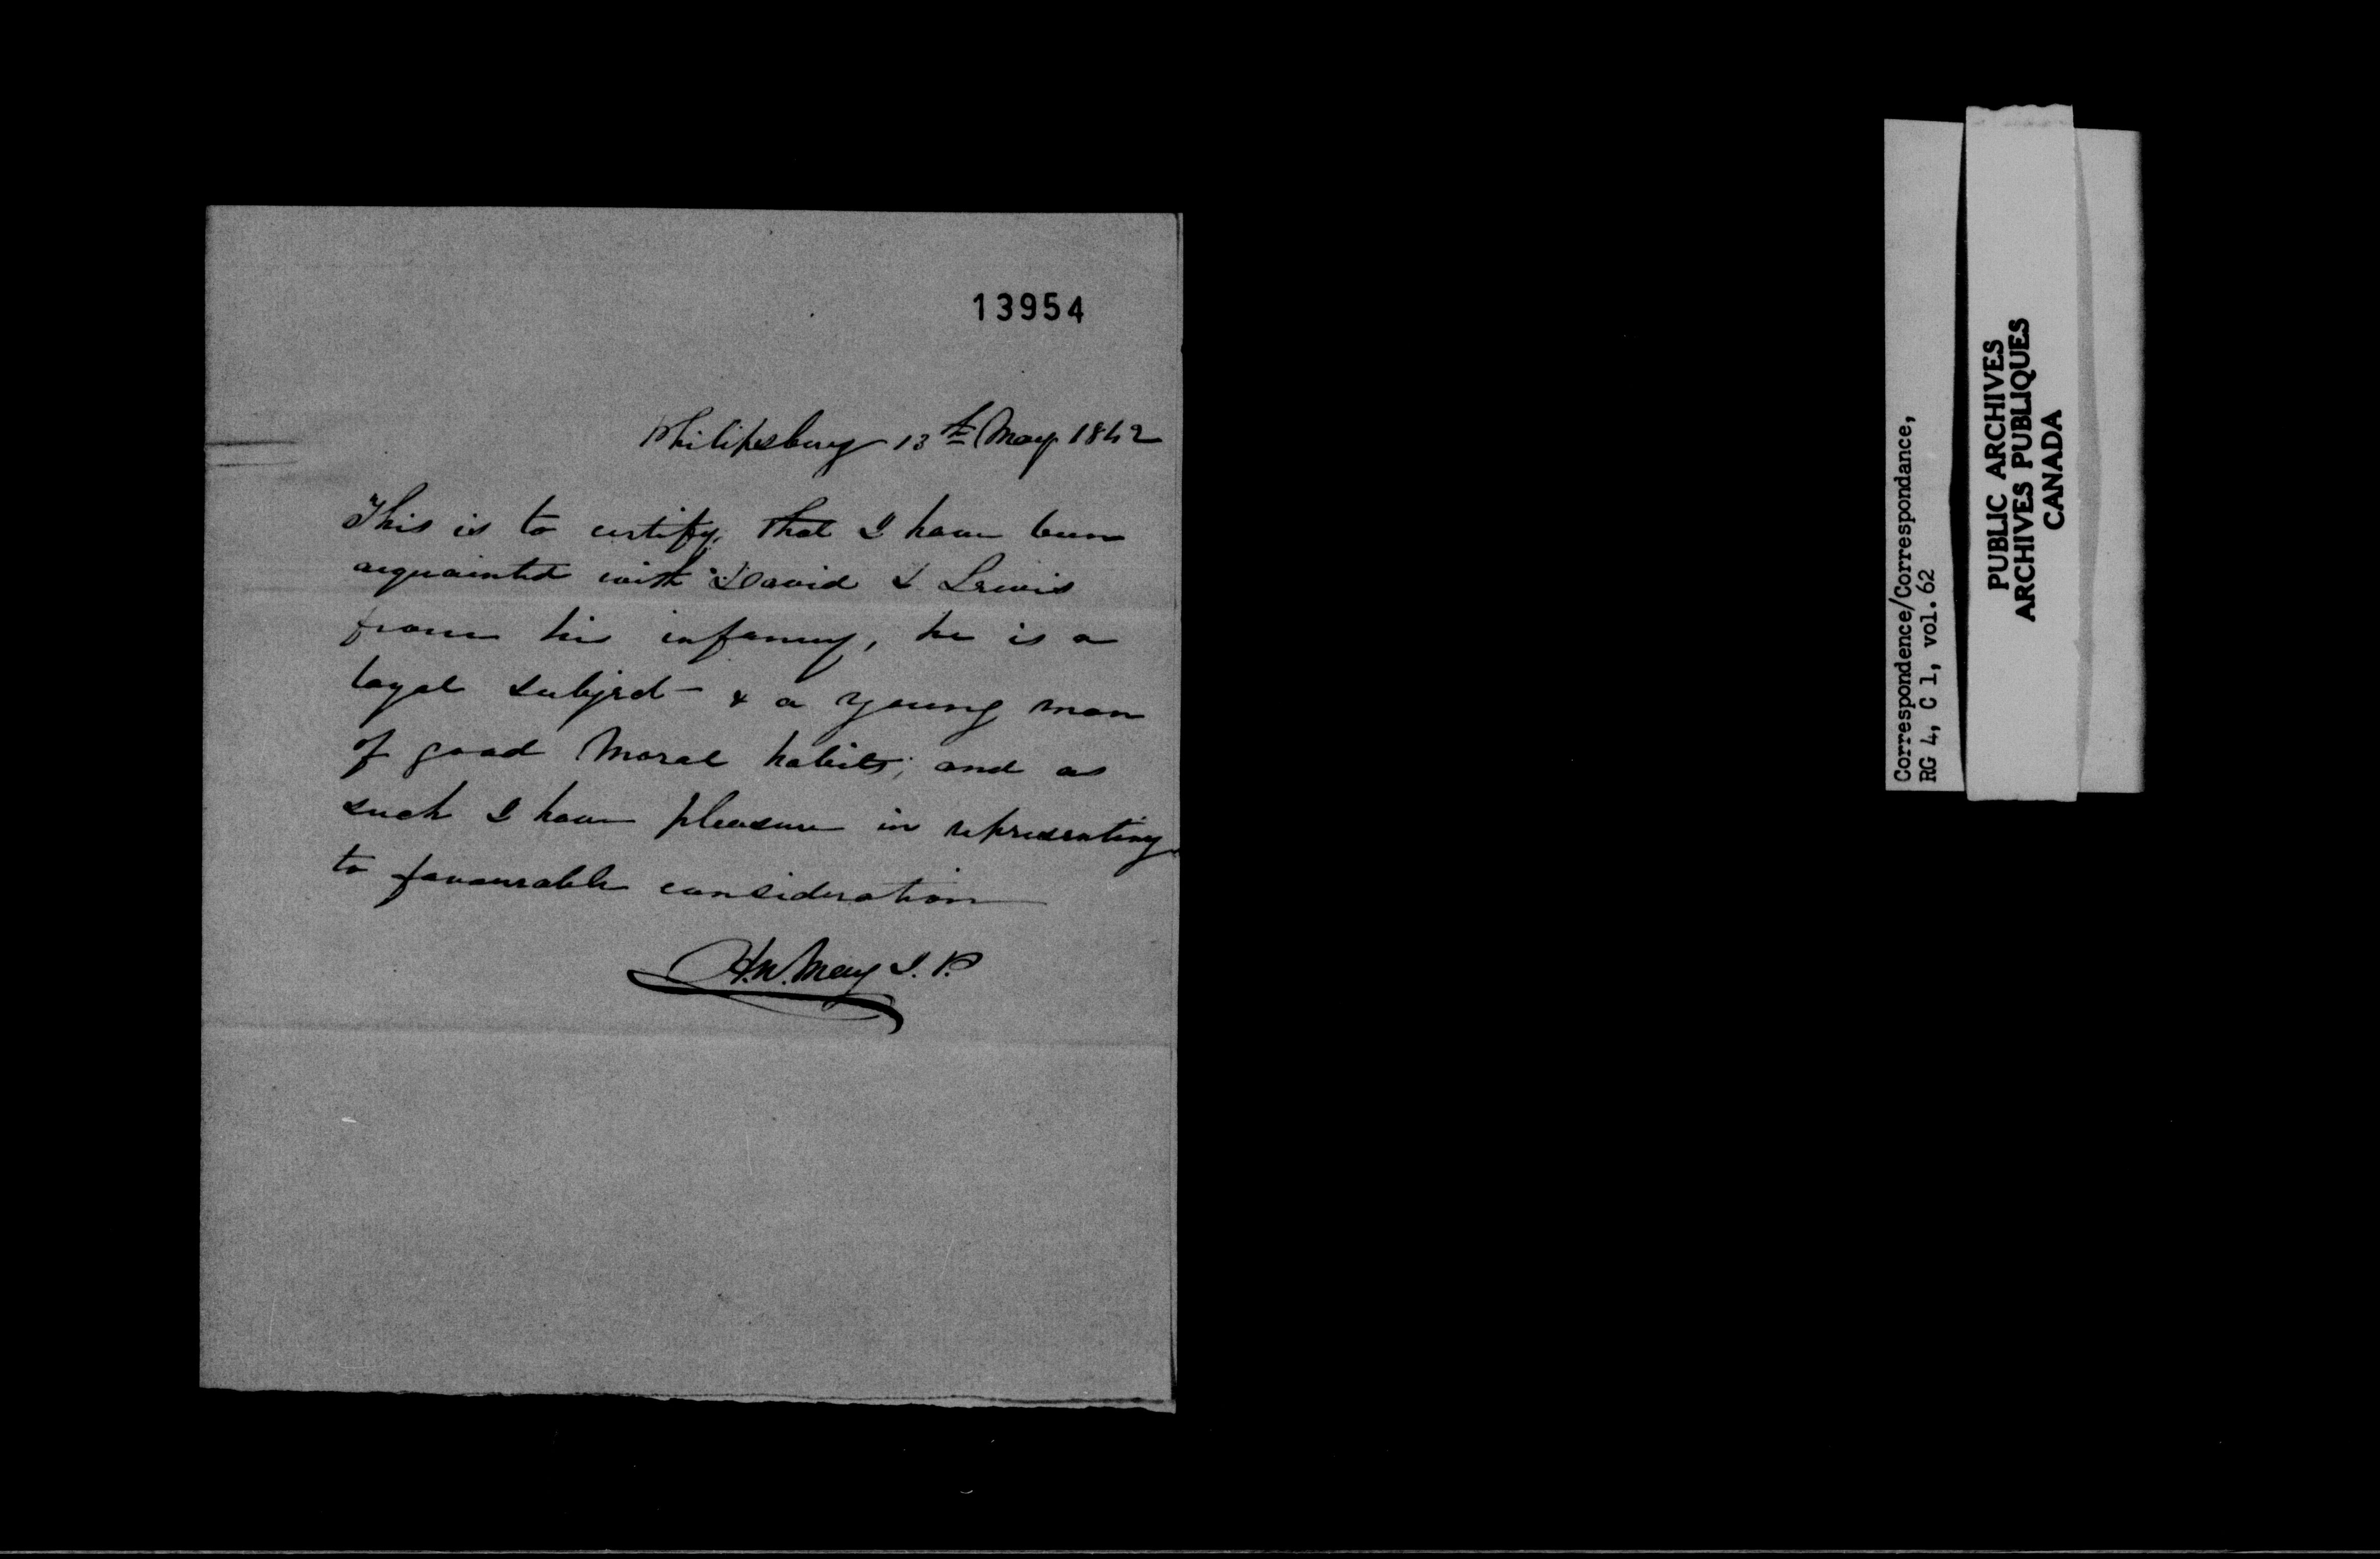 13954
Philipsburg 13th May 1842
This is to certify, that I have been
acquainted with David L Lewis
from his infancy, he is a
loyal subject & a young man
of good Moral habits; and as
such I have pleasure in representing
to favourable consideration
H.N. May J.P.
Correspondence/Correspondance,
RG 4, C 1, vol. 62
PUBLIC ARCHIVES
ARCHIVES PUBLIQUES
CANADA